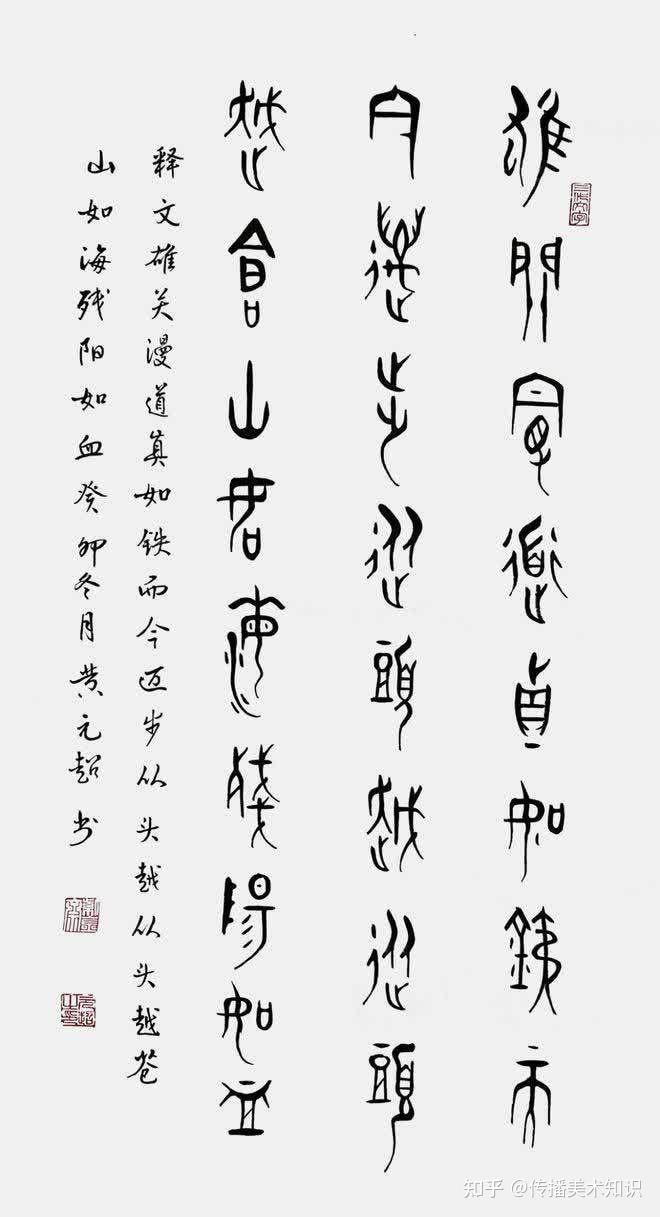 雄關漫道真如鐵而
今邁步從頭越從頭
越蒼山如海殘陽如血
释文雄关漫道真如铁而今迈步从头越从头越苍
山如海残阳如血癸卯冬月黄元超书
知乎 @传播美术知识